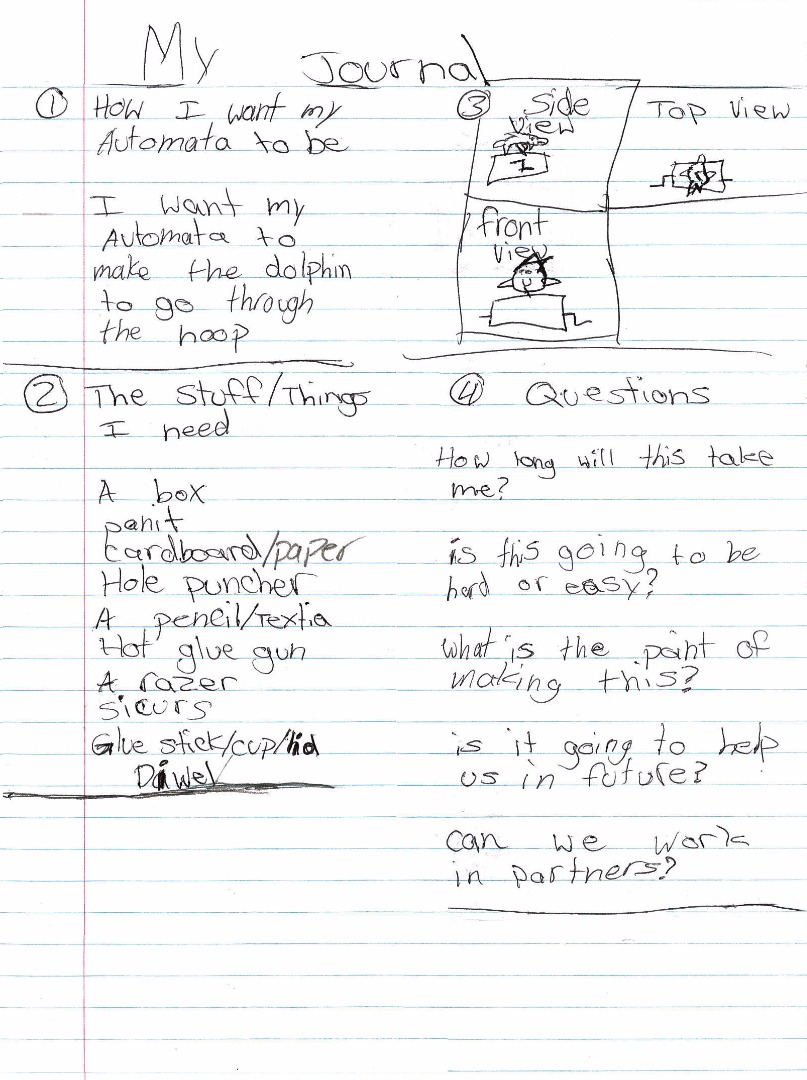 My Journal
① How I want my
Automata to be
I want my
Automata to
make the dolphin
to go through
the hoop
② The Stuff/Things
I need
A box
panit
Cardboard/paper
Hole puncher
A pencil/Textia
Hot glue gun
A razer
sicurs
Glue stick/cup/lid
Diwel
③ Side
view
Top view
front
view
④ Questions
How long will this take
me?
is this going to be
hard or easy?
what is the point of
making this?
is it going to help
us in future?
can we work
in partners?